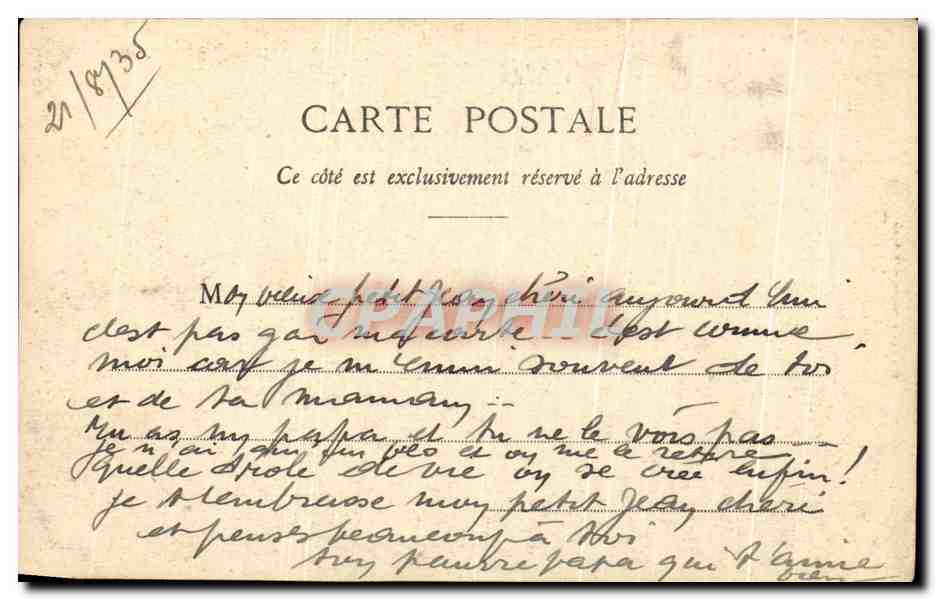 21/8/35
CARTE POSTALE
Ce côté est exclusivement réservé à l'adresse
CPAPHIL
Mon vieux petit Jean chéri aujourd'hui
c'est pas gai ma carte c'est comme
moi car je m'ennui souvent de toi
et de ta maman --
Tu as un papa et tu ne le vois pas --
je n'ai qu'un un bes et on me le retire
quelle drole de vie on se crée enfin!
je t'embrasse mon petit Jean cheri
et penses beaucoup à toi
ton pauvre papa qui t'aime
bien